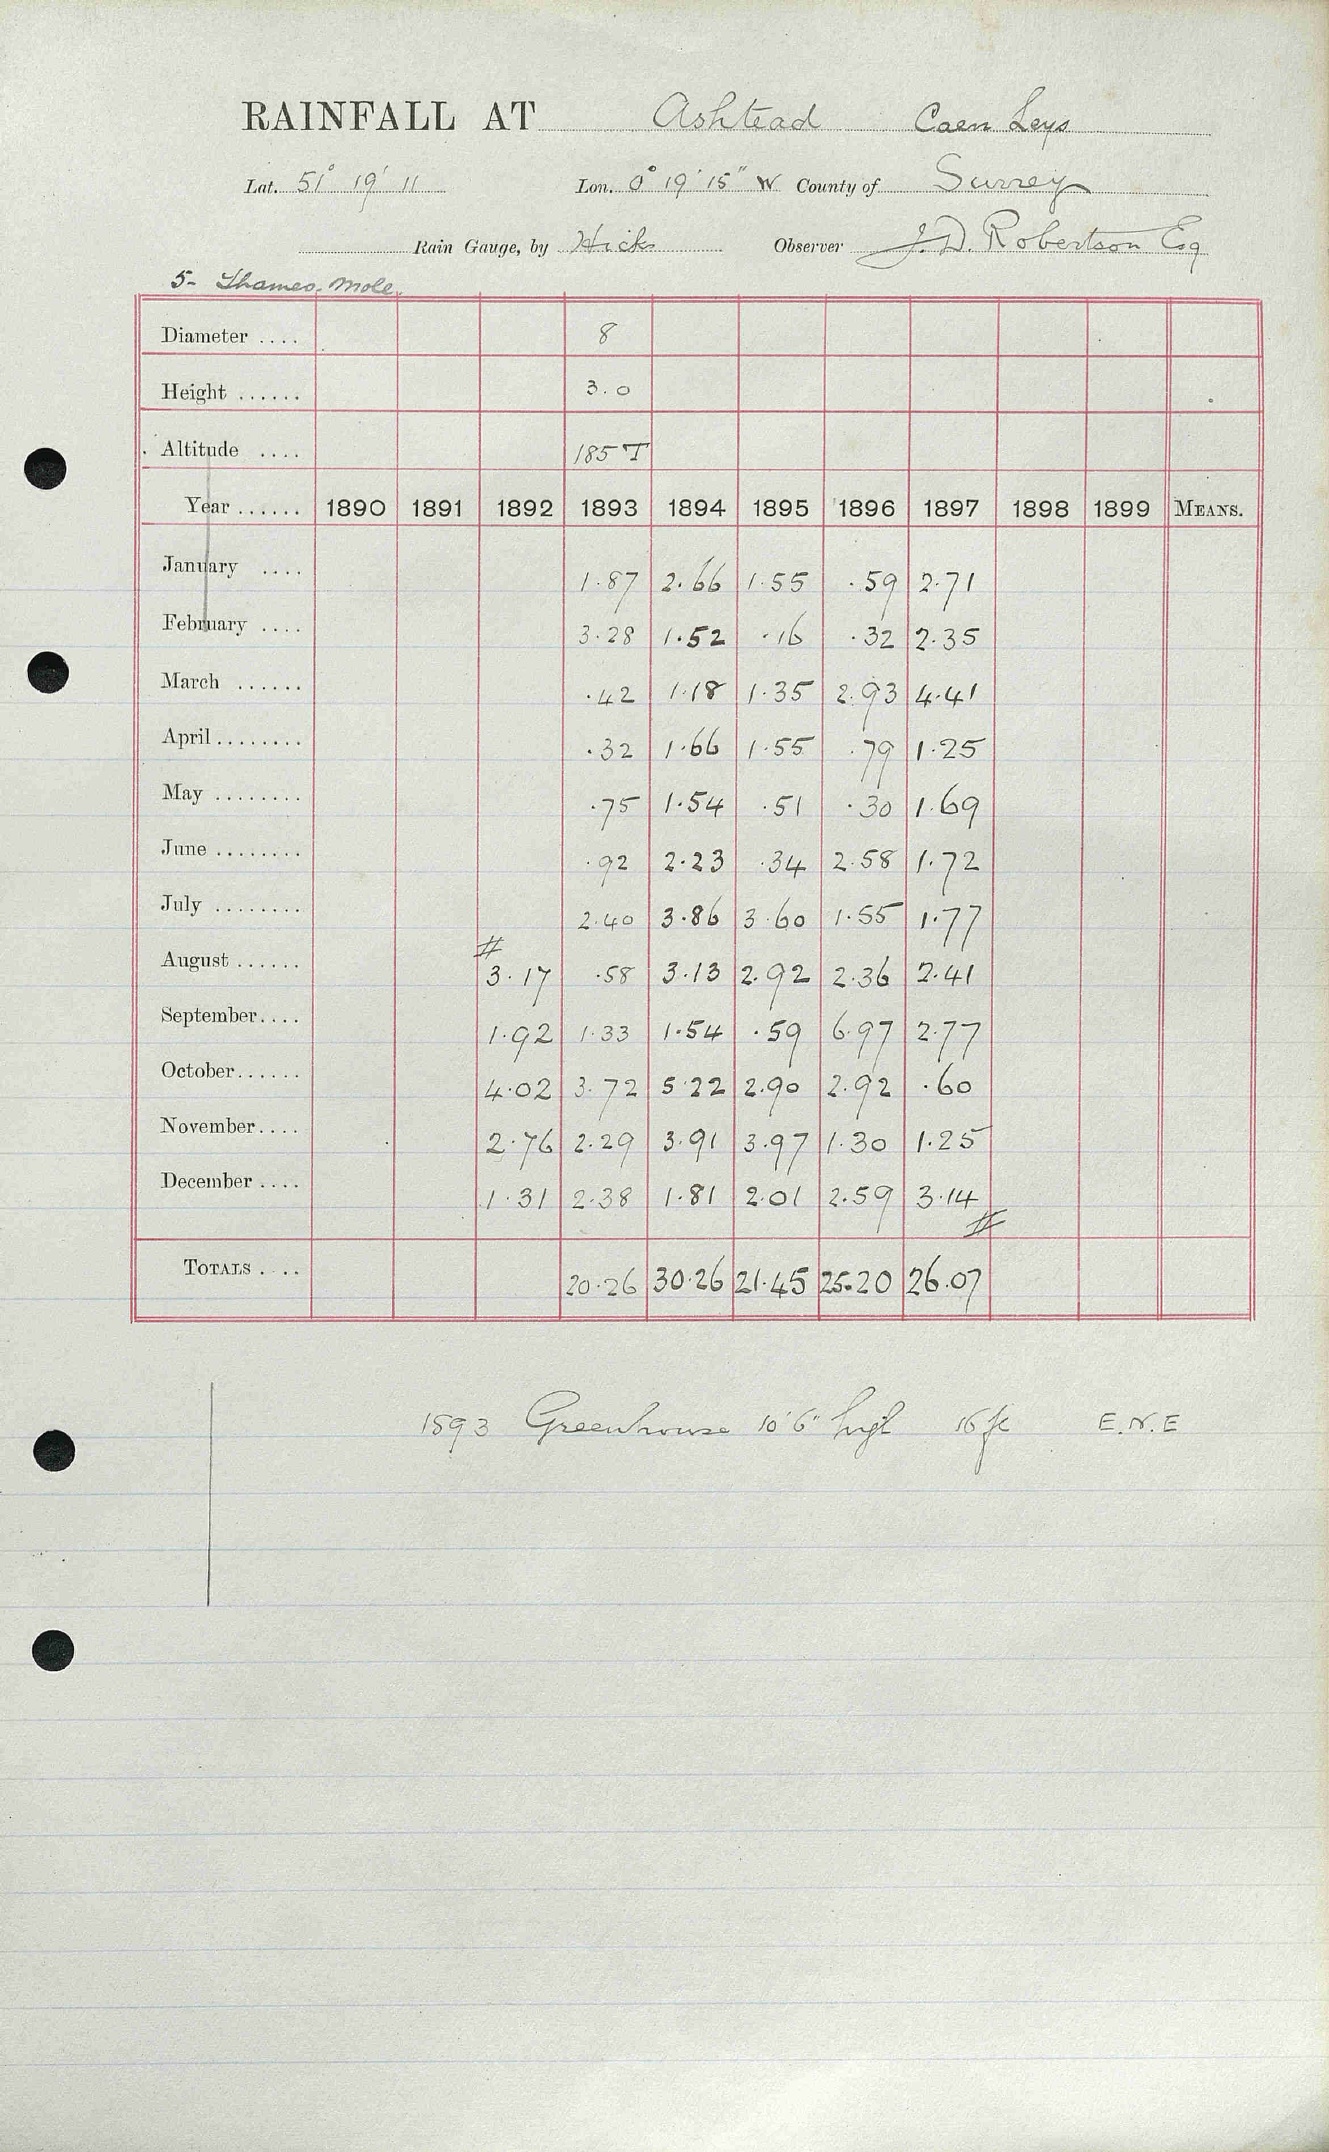 RAINFALL AT Ashtead Caen Leys
Lat. 51° 19' 11 Lon. 0° 19' 15" W County of Surrey
Rain Gauge, by Hicks Observer J. D. Robertson Esq
5- Thames. Mole.
Diameter .... 8
Height ...... 3.0
Altitude .... 185 T
Year ...... 1890 1891 1892 1893 1894 1895 1896 1897 1898 1899 MEANS.
January .... 1.87 2.66 1.55 .59 2.71
February .... 3.28 1.52 .16 .32 2.35
March ...... .42 1.18 1.35 2.93 4.41
April ........ .32 1.66 1.55 .79 1.25
May ........ .75 1.54 .51 .30 1.69
June ........ .92 2.23 .34 2.58 1.72
July ........ 2.40 3.86 3.60 1.55 1.77
#
August ...... 3.17 .58 3.13 2.92 2.36 2.41
September .... 1.92 1.33 1.54 .59 6.97 2.77
October ...... 4.02 3.72 5.22 2.90 2.92 .60
November .... 2.76 2.29 3.91 3.97 1.30 1.25
December .... 1.31 2.38 1.81 2.01 2.59 3.14
#
TOTALS .... 20.26 30.26 21.45 25.20 26.07
1893 Greenhouse 10'6" high 16 ft E.N.E